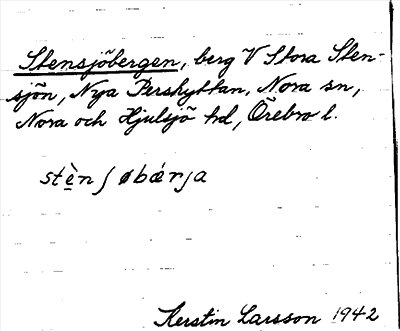 Stensjöbergen, berg V Stora Sten-
sjön, Nya Pershyttan, Nora sn,
Nora och Hjulsjö hd, Örebro l.
stèn ʃ øbǽrja
Kerstin Larsson 1942